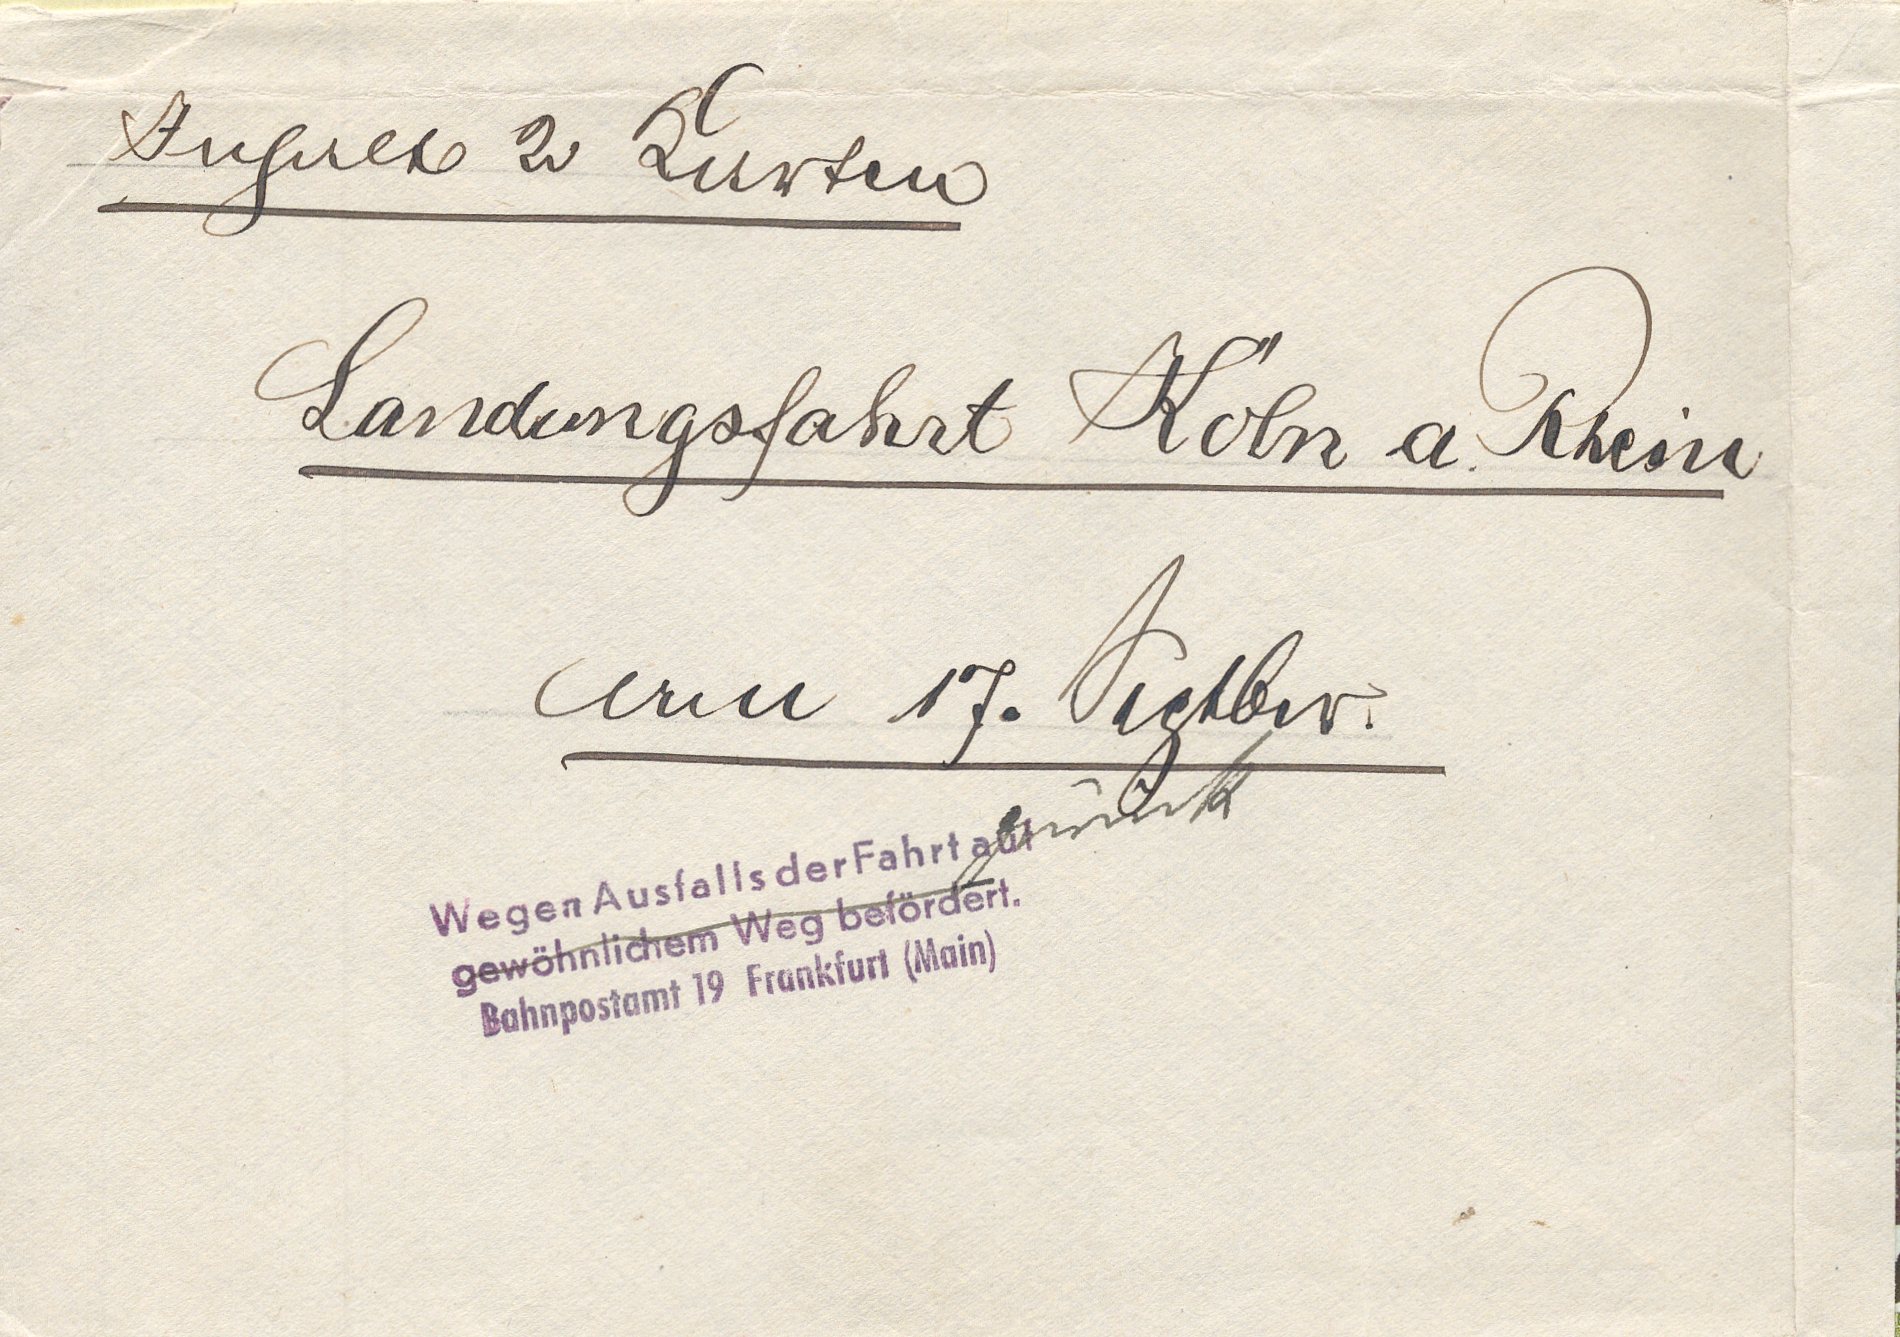 Inhalt 2 Karten
Landungsfahrt Köln a. Rhein
am 17. Septbr.
zurück
Wegen Ausfalls der Fahrt auf
gewöhnlichem Weg befördert.
Bahnpostamt 19 Frankfurt (Main)